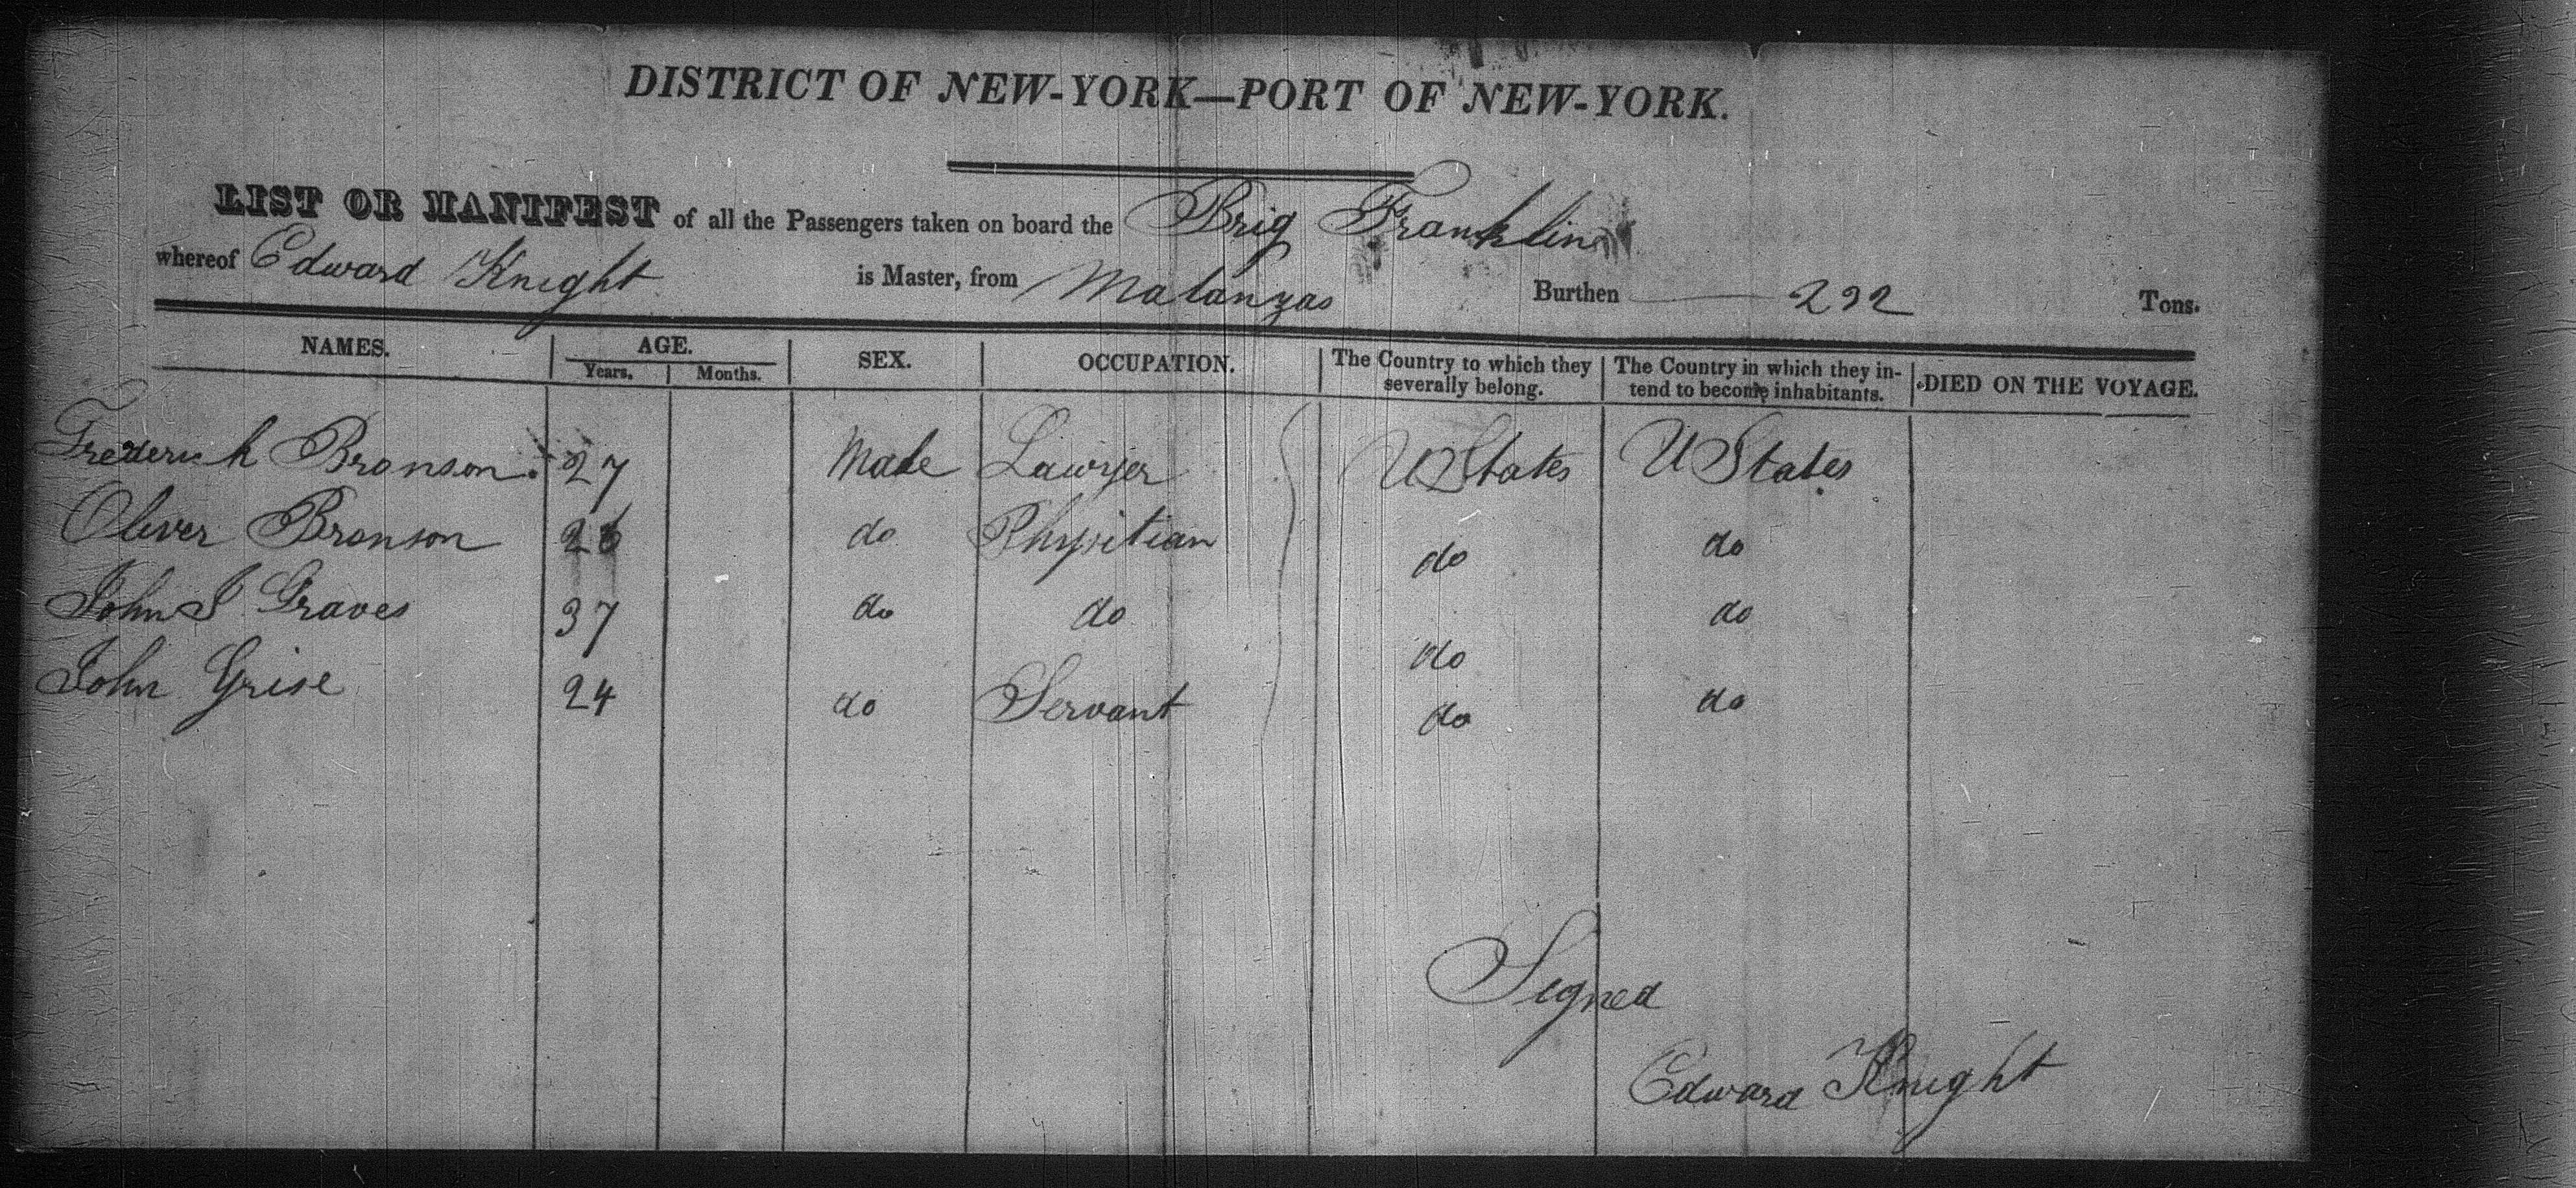 DISTRICT OF NEW-YORK—PORT OF NEW-YORK.
LIST OR MANIFEST of all the Passengers taken on board the Brig Franklin
whereof Edward Knight is Master, from Matanzas Burthen 292 Tons.
NAMES. AGE. SEX. OCCUPATION. The Country to which they severally belong. The Country in which they intend to become inhabitants. DIED ON THE VOYAGE.
Years. Months.
Frederick Bronson. 27 Male Lawyer U States U States
Oliver Bronson 26 do Physitian do do
John J Graves 37 do do do do
John Grise 24 do Servant do do
Signed
Edward Knight